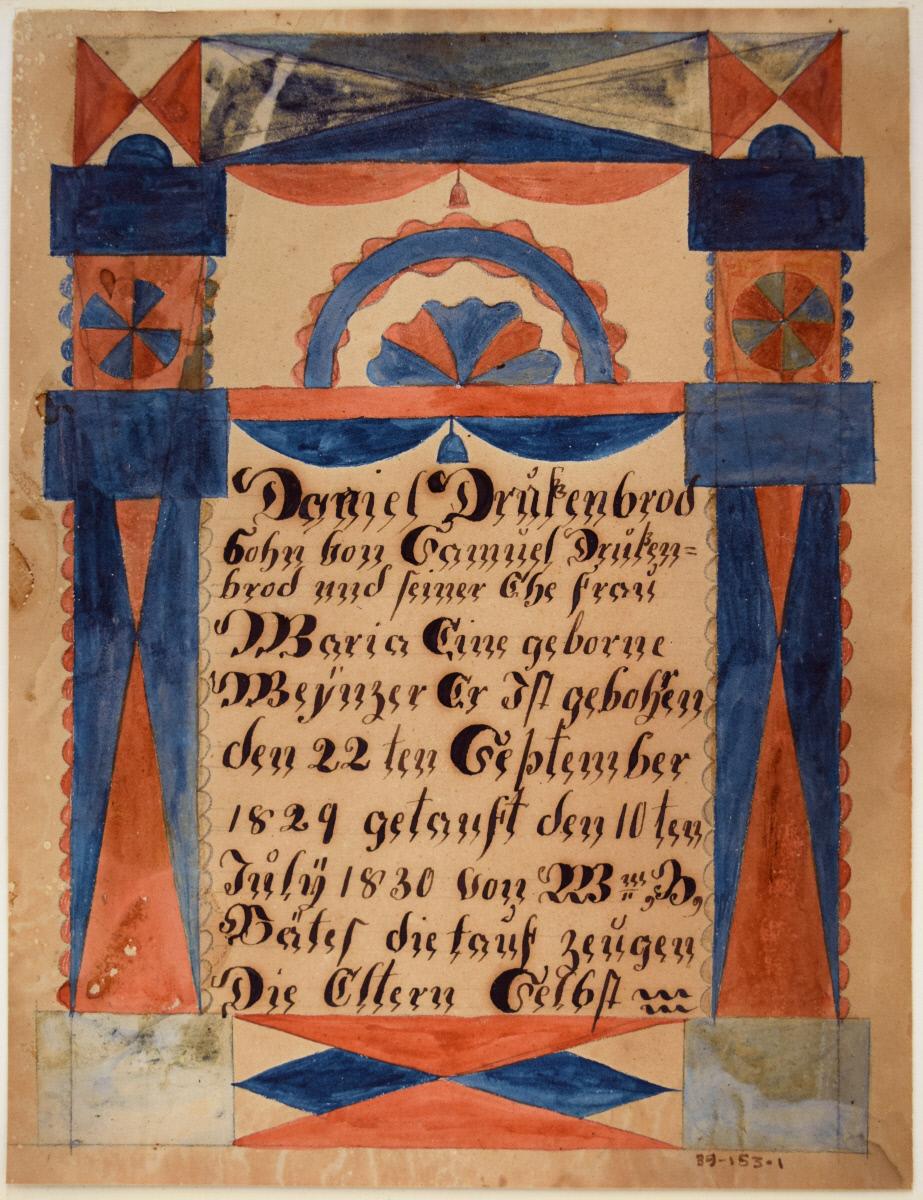 Daniel Drükenbrod
Sohn von Samuel Drüken=
brod und seiner Ehe frau
Maria Eine geborne
Meÿnzer Er Ist gebohren
den 22 ten September
1829 getauft den 10 ten
Julÿ 1830 von Wm B,
Bätes die tauf zeügen
Die Eltern Selbst
89-153.1